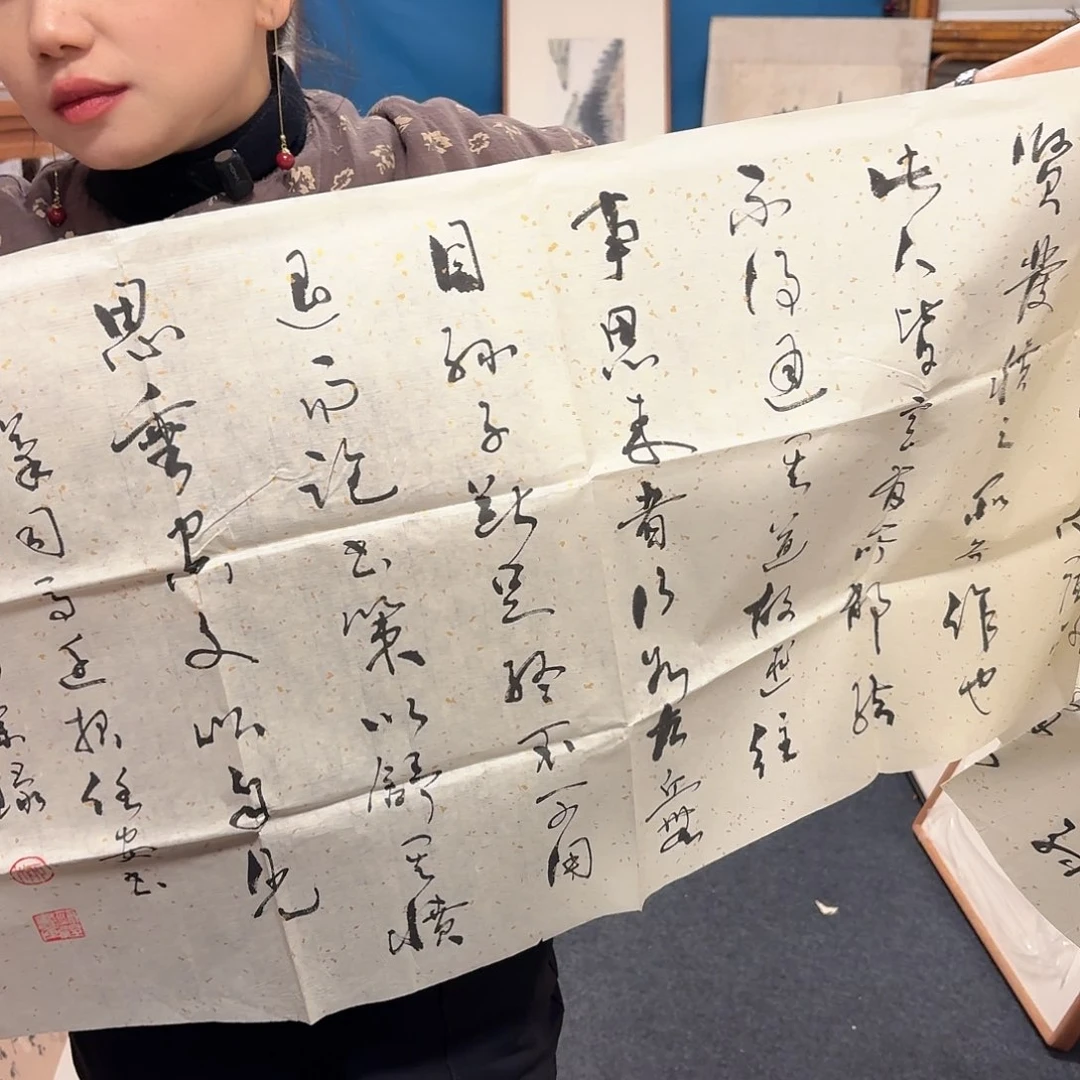 賢發憤之所為作也
此人皆意有所郁結
不得通其道故述往
事思来者及如左丘無
目孫子斷足終不可用
退而論書策以舒其憤
思垂空文以自見
司馬遷報任安書